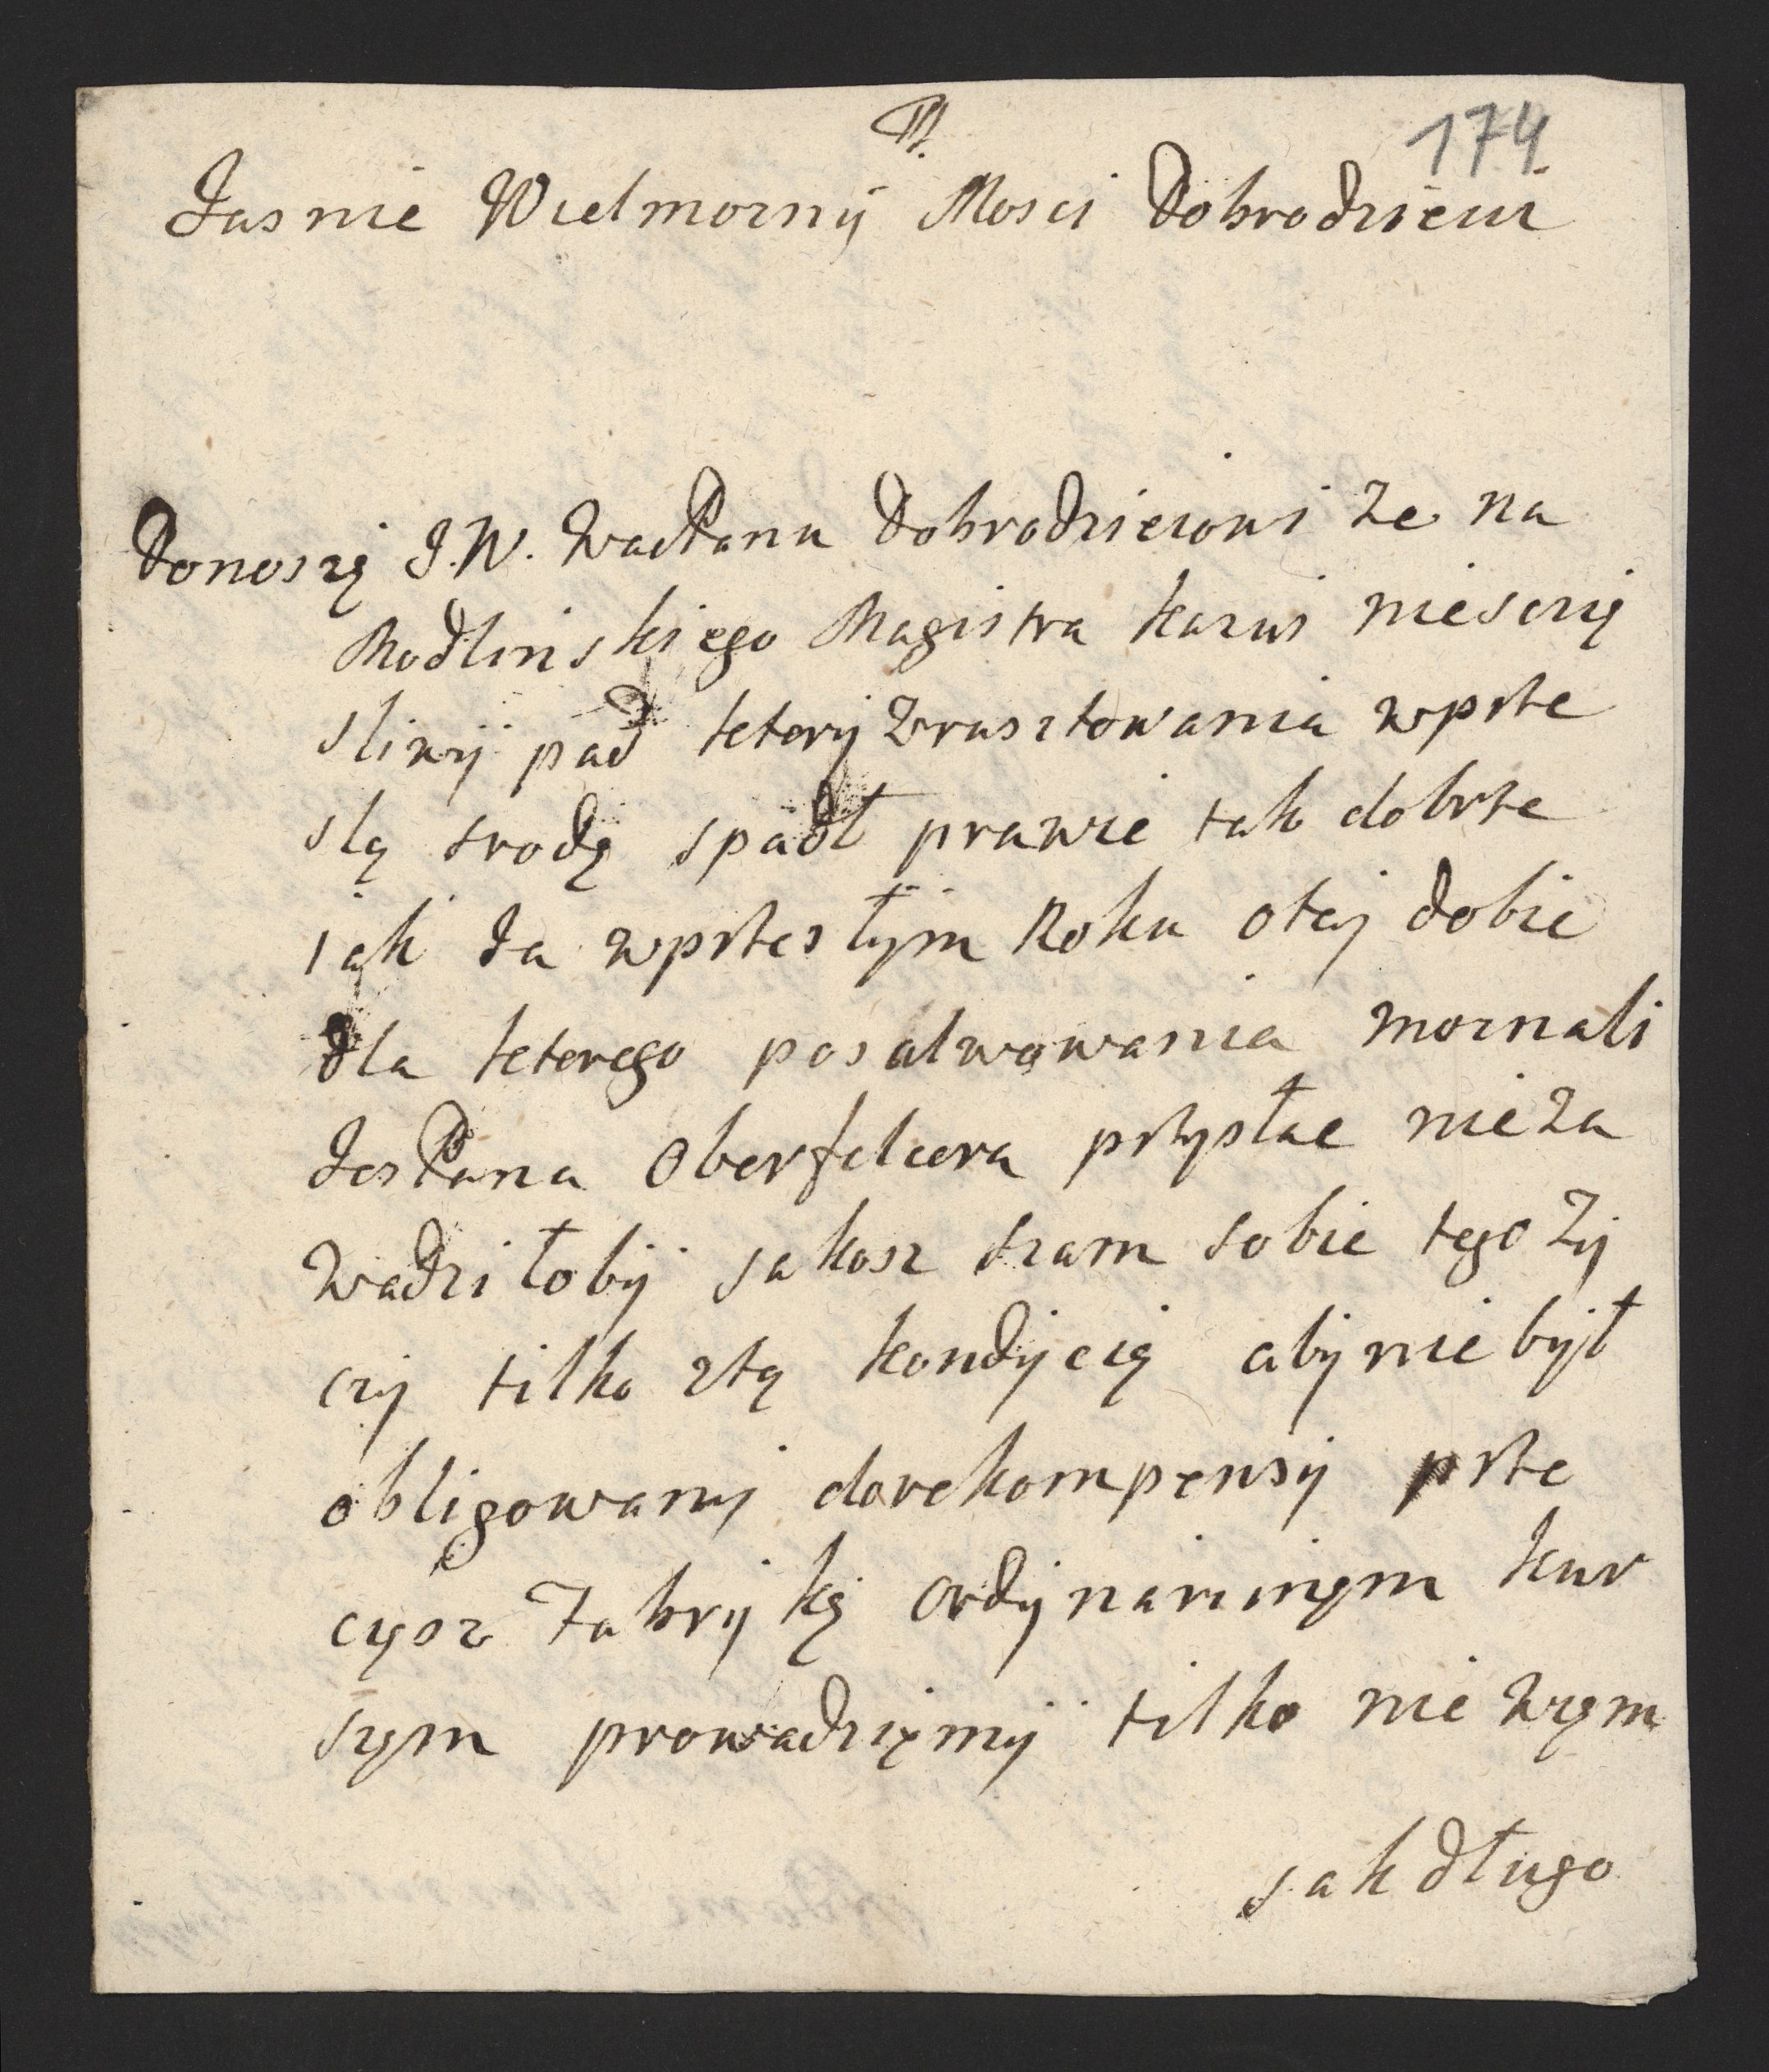 174
Jasnie Wielmozny Mosci Dobrodzieiu
Donoszę J.W. WacPanu Dobrodzieiowi ze na
Modlinskiego Magistra kazus niesczę
sliwy pad ktory zrusztowania wprze
slą srodę spadł prawie tak dobrze
iak Ja wprzeszłym Roku otej dobie
dla kterego posalwowania moznali
JesPana Oberfelcera przysłac nieza
wadziłoby jakosz szam sobie tego zy
czy tilko ztą kondycią aby nie był
obligowany dorekompensy prze
cysz Fabrykę ordynaryinym kur
sym prowadzięmy tilko nie wzym
jak długo